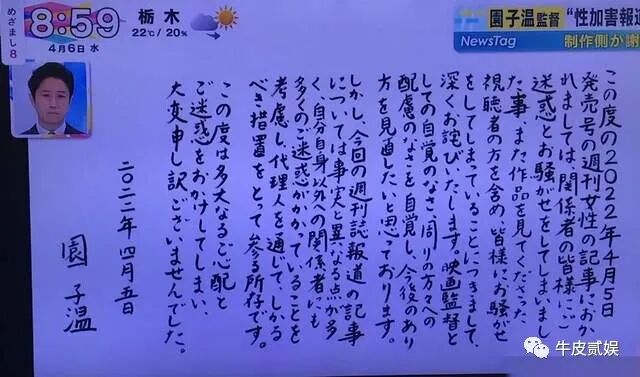 めざまし8
8:59
4月6日 水
栃木
22℃/20%
園子温監督 “性加害報道
NewsTag
制作側が謝
この度の2022年4月5日
発売号の週刊女性の記事におか
れましては、関係者の皆様にご
迷惑とお騒がせをしてしまいまし
た事、また作品を見てくださった
視聴者の方を含め、皆様にお騒がせ
をしてしまっていることにつきまして、
深くお詫びいたします。映画監督と
しての自覚のなさ、周りの方々への
配慮のなさを自覚し、今後のあり
方を見直したいと思っております。
しかし、今回の週刊誌報道の記事
については事実と異なる点が多
く、自分自身以外への関係者にも
多くのご迷惑がかかっていることを
考慮し、代理人を通じて、しかる
べき措置をとって参る所存です。
この度は多大なるご心配と
ご迷惑をおかけしてしまい、
大変申し訳ございませんでした。
二〇二二年四月五日
園子温
牛皮贰娱